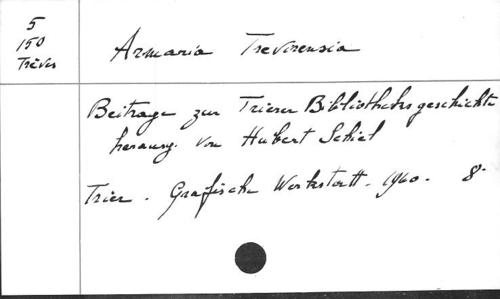 5
150
Trèves
Armaria Trevirensia
Beitrage zur Trierer Bibliotheksgeschichte
herausg. von Hubert Schiel
Trier. Grafische Werkstatt. 1960. 8°